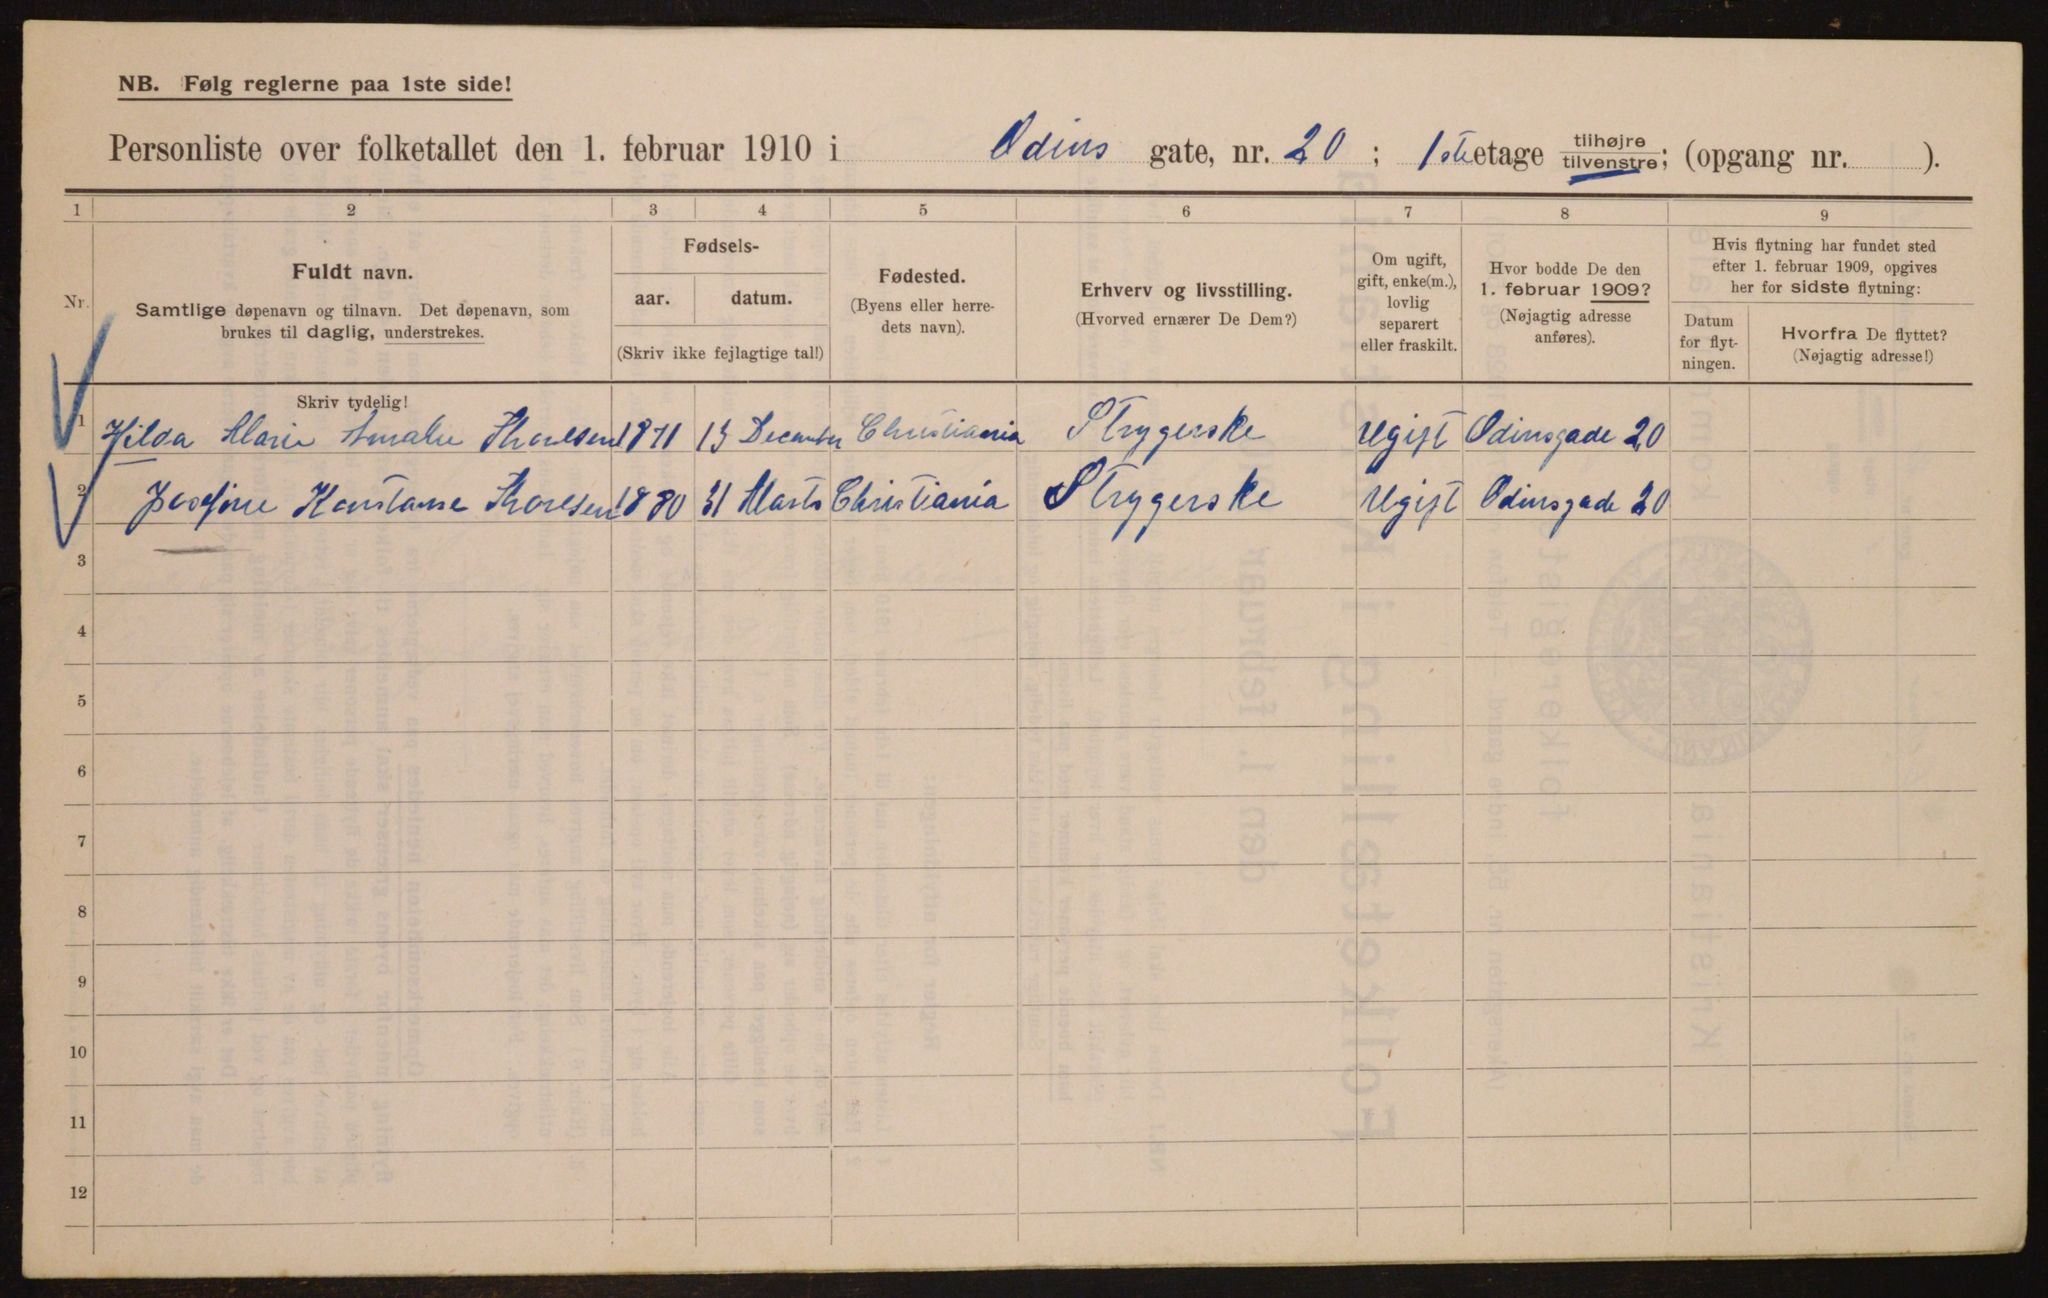 NB. Følg reglerne paa 1ste side!
Personliste over folketallet den 1. februar 1910 i Odins gate, nr. 20 ; 1ste etage tilhøjre tilvenstre; (opgang nr. ).
1 2 3 4 5 6 7 8 9
Nr.
Fuldt navn.
Samtlige døpenavn og tilnavn. Det døpenavn, som
brukes til daglig, understrekes.
Skriv tydelig!
Fødsels-
aar. datum.
(Skriv ikke fejlagtige tal!)
Fødested.
(Byens eller herre-
dets navn).
Erhverv og livsstilling.
(Hvorved ernærer De Dem?)
Om ugift,
gift, enke(m.),
lovlig
separert
eller fraskilt.
Hvor bodde De den
1. februar 1909?
(Nøjagtig adresse
anføres).
Hvis flytning har fundet sted
efter 1. februar 1909, opgives
her for sidste flytning:
Datum
for flyt-
ningen.
Hvorfra De flyttet?
(Nøjagtig adresse!)
1 Hilda Marie Amalie Thoresen 1871 13 December Christiania Strygerske Ugift Odinsgade 20
2 Josefine Konstanse Thoresen 1880 31 Marts Christiania Strygerske Ugift Odinsgade 20
3
4
5
6
7
8
9
10
11
12